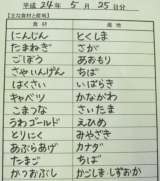 平成 24年 5月 25日分
【主な食材と産地】
食材 産地
にんじん とくしま
たまねぎ さが
ごぼう あおもり
さやいんげん ちば
はくさい いばらき
キャベツ かながわ
こまつな さいたま
うわゴールド えひめ
とりにく みやざき
あぶらあげ カナダ
たまご ちば
かつおぶし かごしま・しずおか